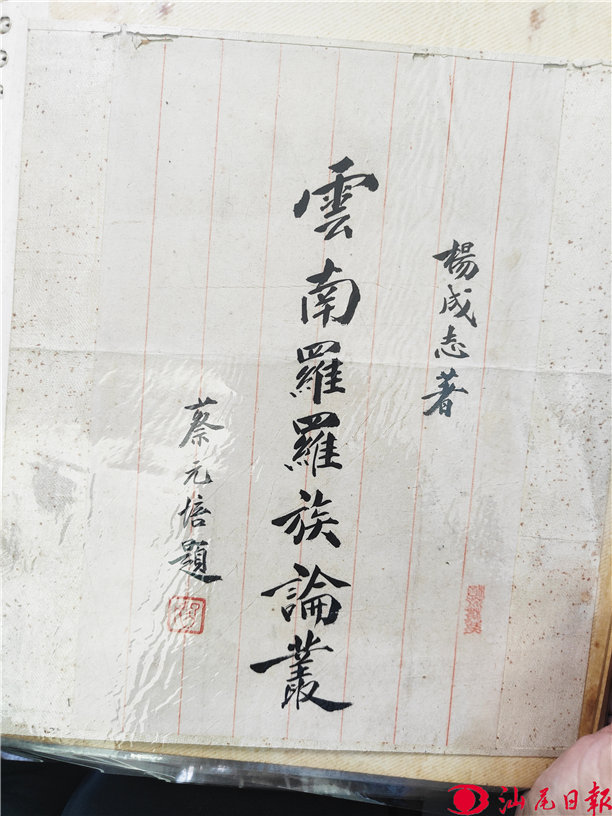 楊成志著
雲南羅羅族論叢
蔡元培題
汕尾日報